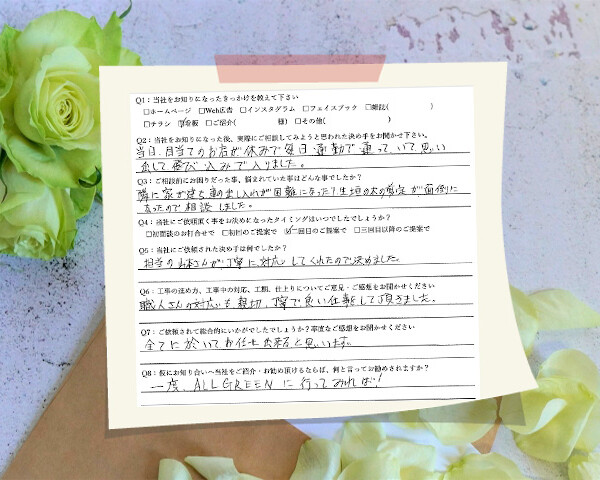 Q1：当社をお知りになったきっかけを教えて下さい
□ホームページ □Web広告 □インスタグラム □フェイスブック □雑誌( )
□チラシ ☑看板 □ご紹介( 様) □その他( )
Q2：当社をお知りになった後、実際にご相談してみようと思われた決め手をお聞かせ下さい。
当日、目当てのお店が休みで毎日通勤で通っていて思い
出して飛び込みで入りました。
Q3：ご相談前にお困りだった事、悩まれていた事はどんな事でしたか？
隣に家が建ち車の出し入れが困難になった？生垣の の剪定が面倒に
なったので相談しました。
Q4：当社にご依頼頂く事をお決めになったタイミングはいつでしたでしょうか？
□初面談のお打合せで □初回のご提案で ☑二回目のご提案で □三回目以降のご提案で
Q5：当社にご依頼された決め手は何でしたか？
担当の さんが丁寧に対応してくれたので決めました。
Q6：工事の進め方、工事中の対応、工期、仕上りについてご意見・ご感想をお聞かせください
職人さんの対応も親切、丁寧で良い仕事して頂きました。
Q7：ご依頼されて総合的にいかがでしたでしょうか？率直なご感想をお聞かせください
全てに於いてお任せ出来ると思います。
Q8：仮にお知り合いへ当社をご紹介・お勧め頂けるならば、何と言ってお勧めされますか？
一度、ALL GREENに行ってみれば！